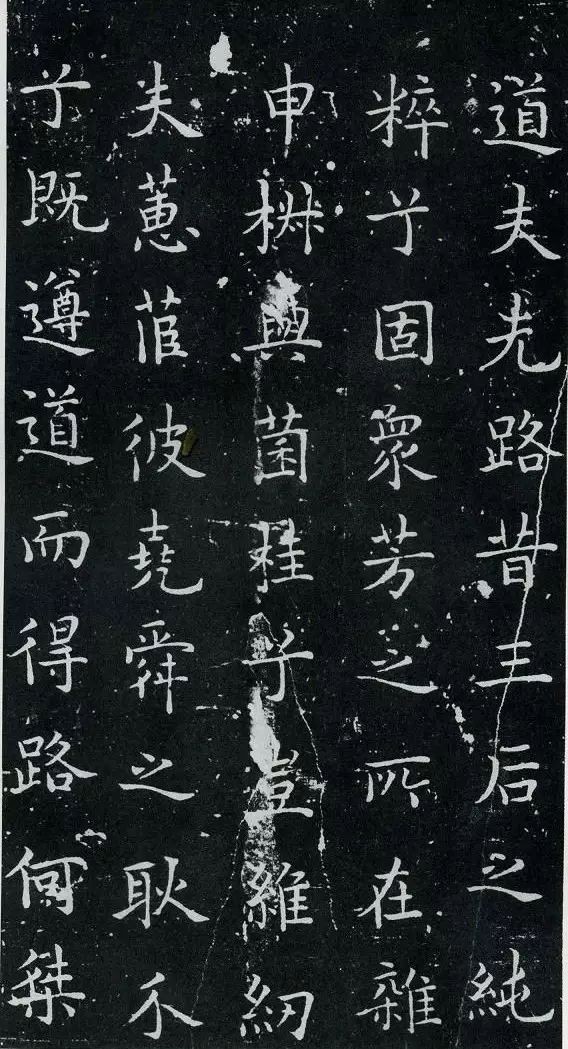 道夫先路昔三后之純
粹兮固衆芳之所在雜
申椒與菌桂兮豈維紉
夫蕙茝彼堯舜之耿介
兮既遵道而得路何桀